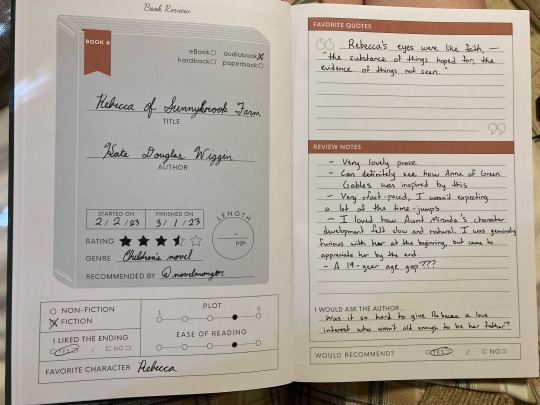 Book Review
BOOK #
eBook audiobook
hardback paperback
Rebecca of Sunnybrook Farm
TITLE
Kate Douglas Wiggin
AUTHOR
STARTED ON FINISHED ON
2/2/23 3/1/23
LENGTH
-
pgs.
RATING
GENRE Children's novel
RECOMMENDED BY @novelmonger
NON-FICTION
FICTION
PLOT
1 5
I LIKED THE ENDING
YES / NO
EASE OF READING
FAVORITE CHARACTER Rebecca
FAVORITE QUOTES
Rebecca's eyes were like faith, —
"the substance of things hoped for, the
evidence of things not seen.
REVIEW NOTES
- Very lovely prose
- Can definitely see how Anne of Green
Gables was inspired by this
- Very fast-paced, I wasn't expecting
a lot of the time-jumps
- I loved how Aunt Miranda's character
development felt slow and natural. I was genuinely
furious with her at the beginning, but came to
appreciate her by the end.
- A 19-year age gap???
I WOULD ASK THE AUTHOR...
Was it so hard to give Rebecca a love
interest who wasn't old enough to be her father?
WOULD RECOMMEND? YES / NO